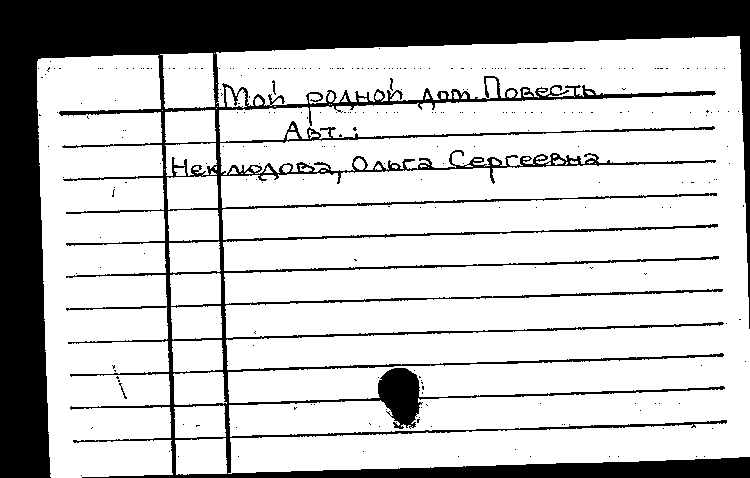 Мой родной дом. Повесть.
Авт.:
Неклюдова, Ольга Сергеевна.